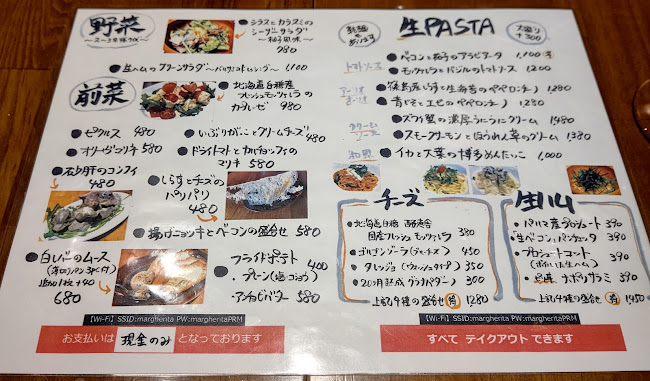 野菜
シラスとカラスミの
シーザーサラダ
～柚子風味～
980
生ハムのグリーンサラダ
1,100
前菜
北海道白糠産
フレッシュモッツァレラの
カプレーゼ 980
ピクルス 480
いぶりがっことクリームチーズ 480
オリーヴマリネ 580
ドライトマトとカルチョッフィの
マリネ 580
砂肝のコンフィ
480
しらすとチーズの
パリパリ
480
揚げニョッキとベーコンの盛合せ 580
白レバーのムース
(薄切りパン3枚付)
追加1枚+40
680
フライドポテト 400
・プレーン(塩・コショウ)
・アンチョビバター 580
【Wi-Fi】SSID:margherita PW:margheritaPRM
お支払いは 現金のみ となっております
乾麺も
あります
生PASTA
大盛り
+300
トマトソース
ベーコンと茄子のアラビアータ 1,100
モッツァレラとバジルのトマトソース 1200
しらすと生海苔のペペロンチーノ 1280
青じそとエビのペペロンチーノ 1280
クリーム
ソース
ズワイ蟹の濃厚うにクリーム 1480
スモークサーモンとほうれん草のクリーム 1380
和風
イカと大葉の博多めんたいこ 1,000
チーズ
北海道白糠 酪恵舎
国産フレッシュモッツァレラ 380
ゴルゴンゾーラ(青チーズ) 450
タレッジョ(ウォッシュタイプ) 350
20ヶ月熟成 グラナパダーノ 300
上記4種の盛合せ 1280
生ハム
パルマ産プロシュート 390
生ベーコン パンチェッタ 390
プロシュートコット
(ボイルした生ハム) 390
ナポリサラミ 390
上記4種の盛合せ 1450
【Wi-Fi】SSID:margherita PW:margheritaPRM
すべて テイクアウト できます